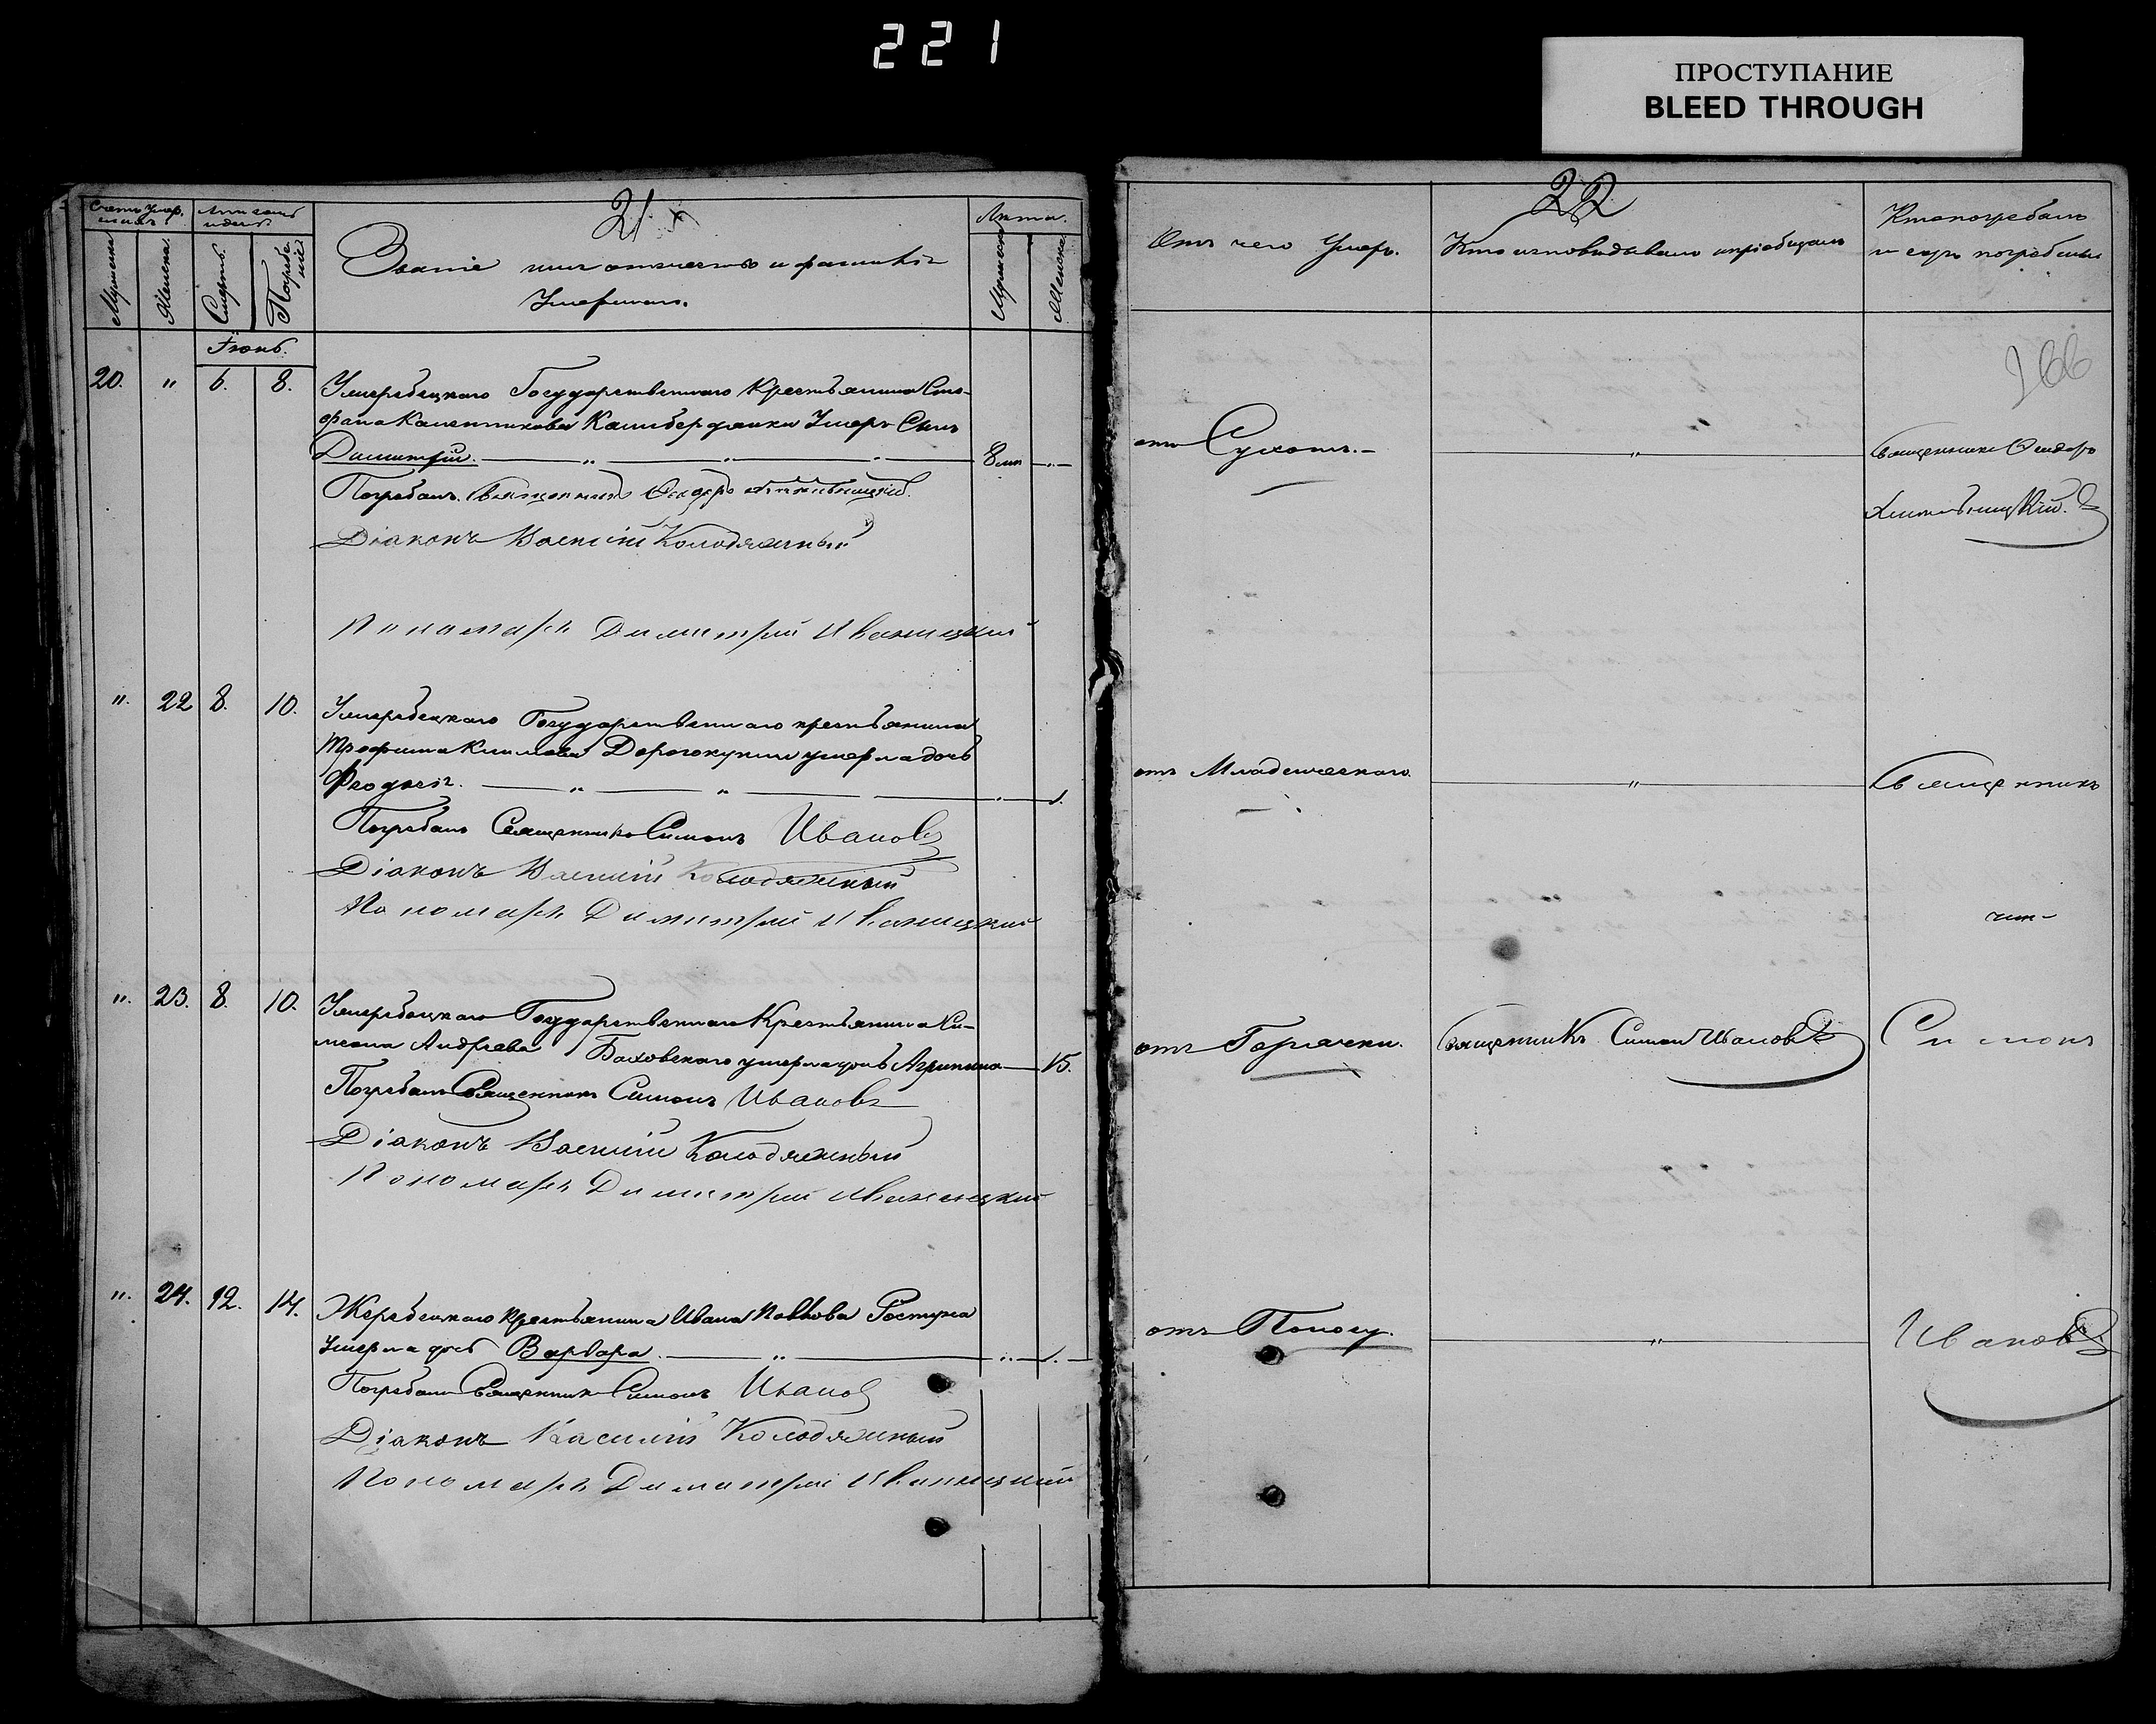 221
ПРОСТУПАНИЕ
BLEED THROUGH
21
Счетъ умер.
Мужеска
Женска.
Смерть.
Погребе
ніе
Званіе имя отчество и фамилія
Умершаго.
Лѣта.
Мужеска
Женска
Іюнь.
20. " 6. 8. Государственного Крестьянина Сте-
фана Умеръ Сынъ
Димитрій. 8 лѣт
Погребалъ Священникъ Феодоръ
Діаконъ Василій Колодяжный
Пономарь Димитрій Иваницкий
". 22 8. 10. Государственнаго крестьянина
Трофима Климова умерла дочь
Феодосія. 1.
Погребалъ Священникъ Симонъ Ивановъ
Діаконъ Василій Колодяжный
Пономарь Димитрий Иваницкий
". 23. 8. 10. Государственнаго Крестьянина Си-
меона Андреева Баховскаго умерла дочь Агрипина 15.
Погребалъ Священникъ Симонъ Ивановъ
Діаконъ Василій Колодяжный
Пономарь Димитрий Иваницкий
". 24. 12. 14. Жеребецкаго крестьянина Ивана
Умерла дочь Варвара. 1.
Погребалъ Священник Симонъ Иванов
Діаконъ Василій Колодяжный
Пономарь Димитрій Иваницкий
22
Отъ чего Умеръ.
Кто исповѣдывалъ и пріобщалъ
Кто погребалъ
и гдѣ погребены
отъ Сухотъ.
Священникъ Феодоръ
отъ Младенческаго.
Священникъ
отъ Горячки.
Священникъ Симон Ивановъ
Симонъ
отъ Поносу.
Ивановъ